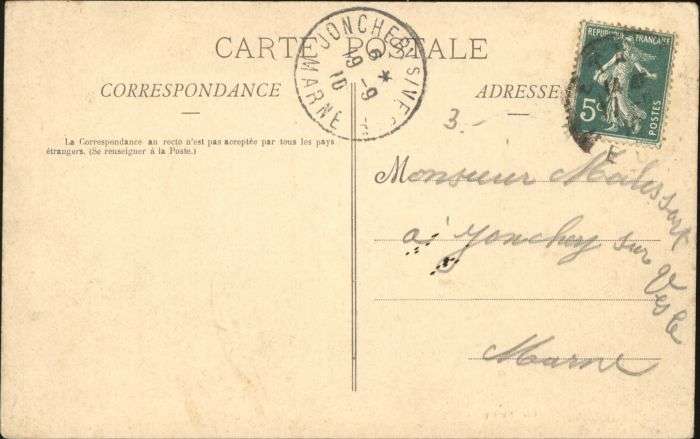 CARTE POSTALE
CORRESPONDANCE
ADRESSE
La Correspondance au recto n'est pas acceptée par tous les pays
étrangers. (Se renseigner à la Poste.)
JONCHERY S/VESLE
MARNE
REPUBLIQUE FRANÇAISE
5c
POSTES
3.-
Monsieur
à Jonchey sur Vesle
Marne